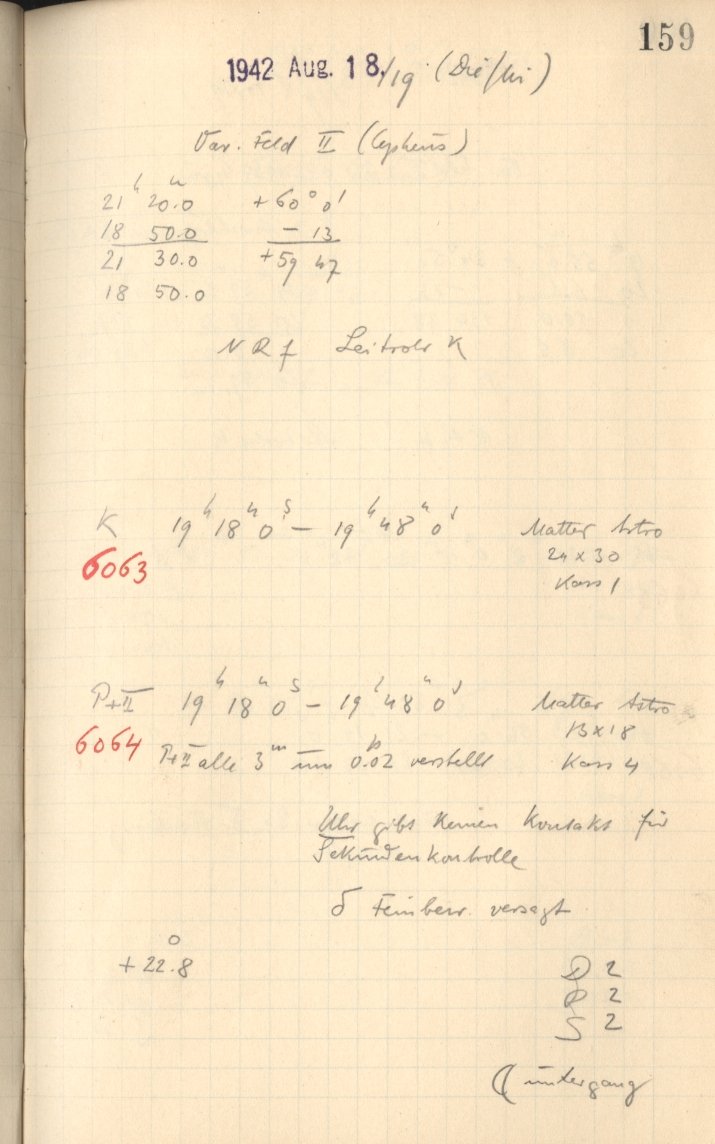 159
1942 Aug. 18./19 (Die/Mi)
Var. Feld II (Cepheus)
21ʰ 20ᵐ.0 +60° 0'
18 50.0 − 13
21 30.0 +59 47
18 50.0
N R f Leitrohr K
K 19ʰ 18ᵐ 0ˢ − 19ʰ 48ᵐ 0ˢ Matter Astro
6063 24 x 30
Kass 1
P+II 19ʰ 18ᵐ 0ˢ − 19ʰ 48ᵐ 0ˢ Matter Astro
13 x 18
6064 P+II alle 3ᵐ um 0.02 verstellt Kass 4
Uhr gibt keinen Kontakt für
Sekundenkontrolle
δ Feinbew. versagt
+22°.8
D 2
R 2
S 2
☾ untergang